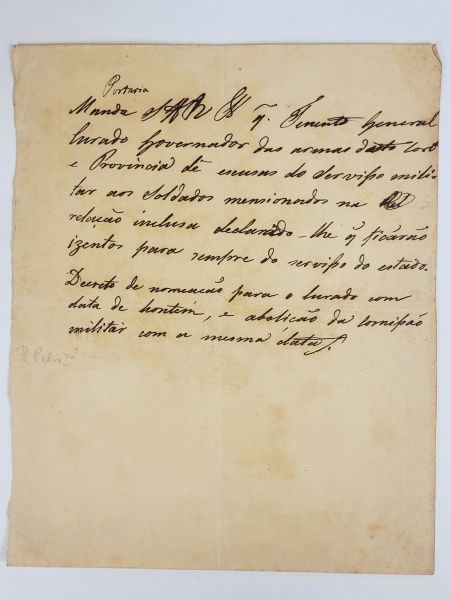 Portaria
Manda S A R q̃ Tenente General
Curado Governador das armas desta Corte
e Provincia dê escusas do Serviço mili-
tar aos Soldados mensionados na
relação inclusa declarando-lhe q̃ ficarão
izentos para sempre do serviço do estado.
Decreto de nomeação para o Curado com
data de hontem, e abolição da Comissão
militar com a mesma data.
D. Pedro